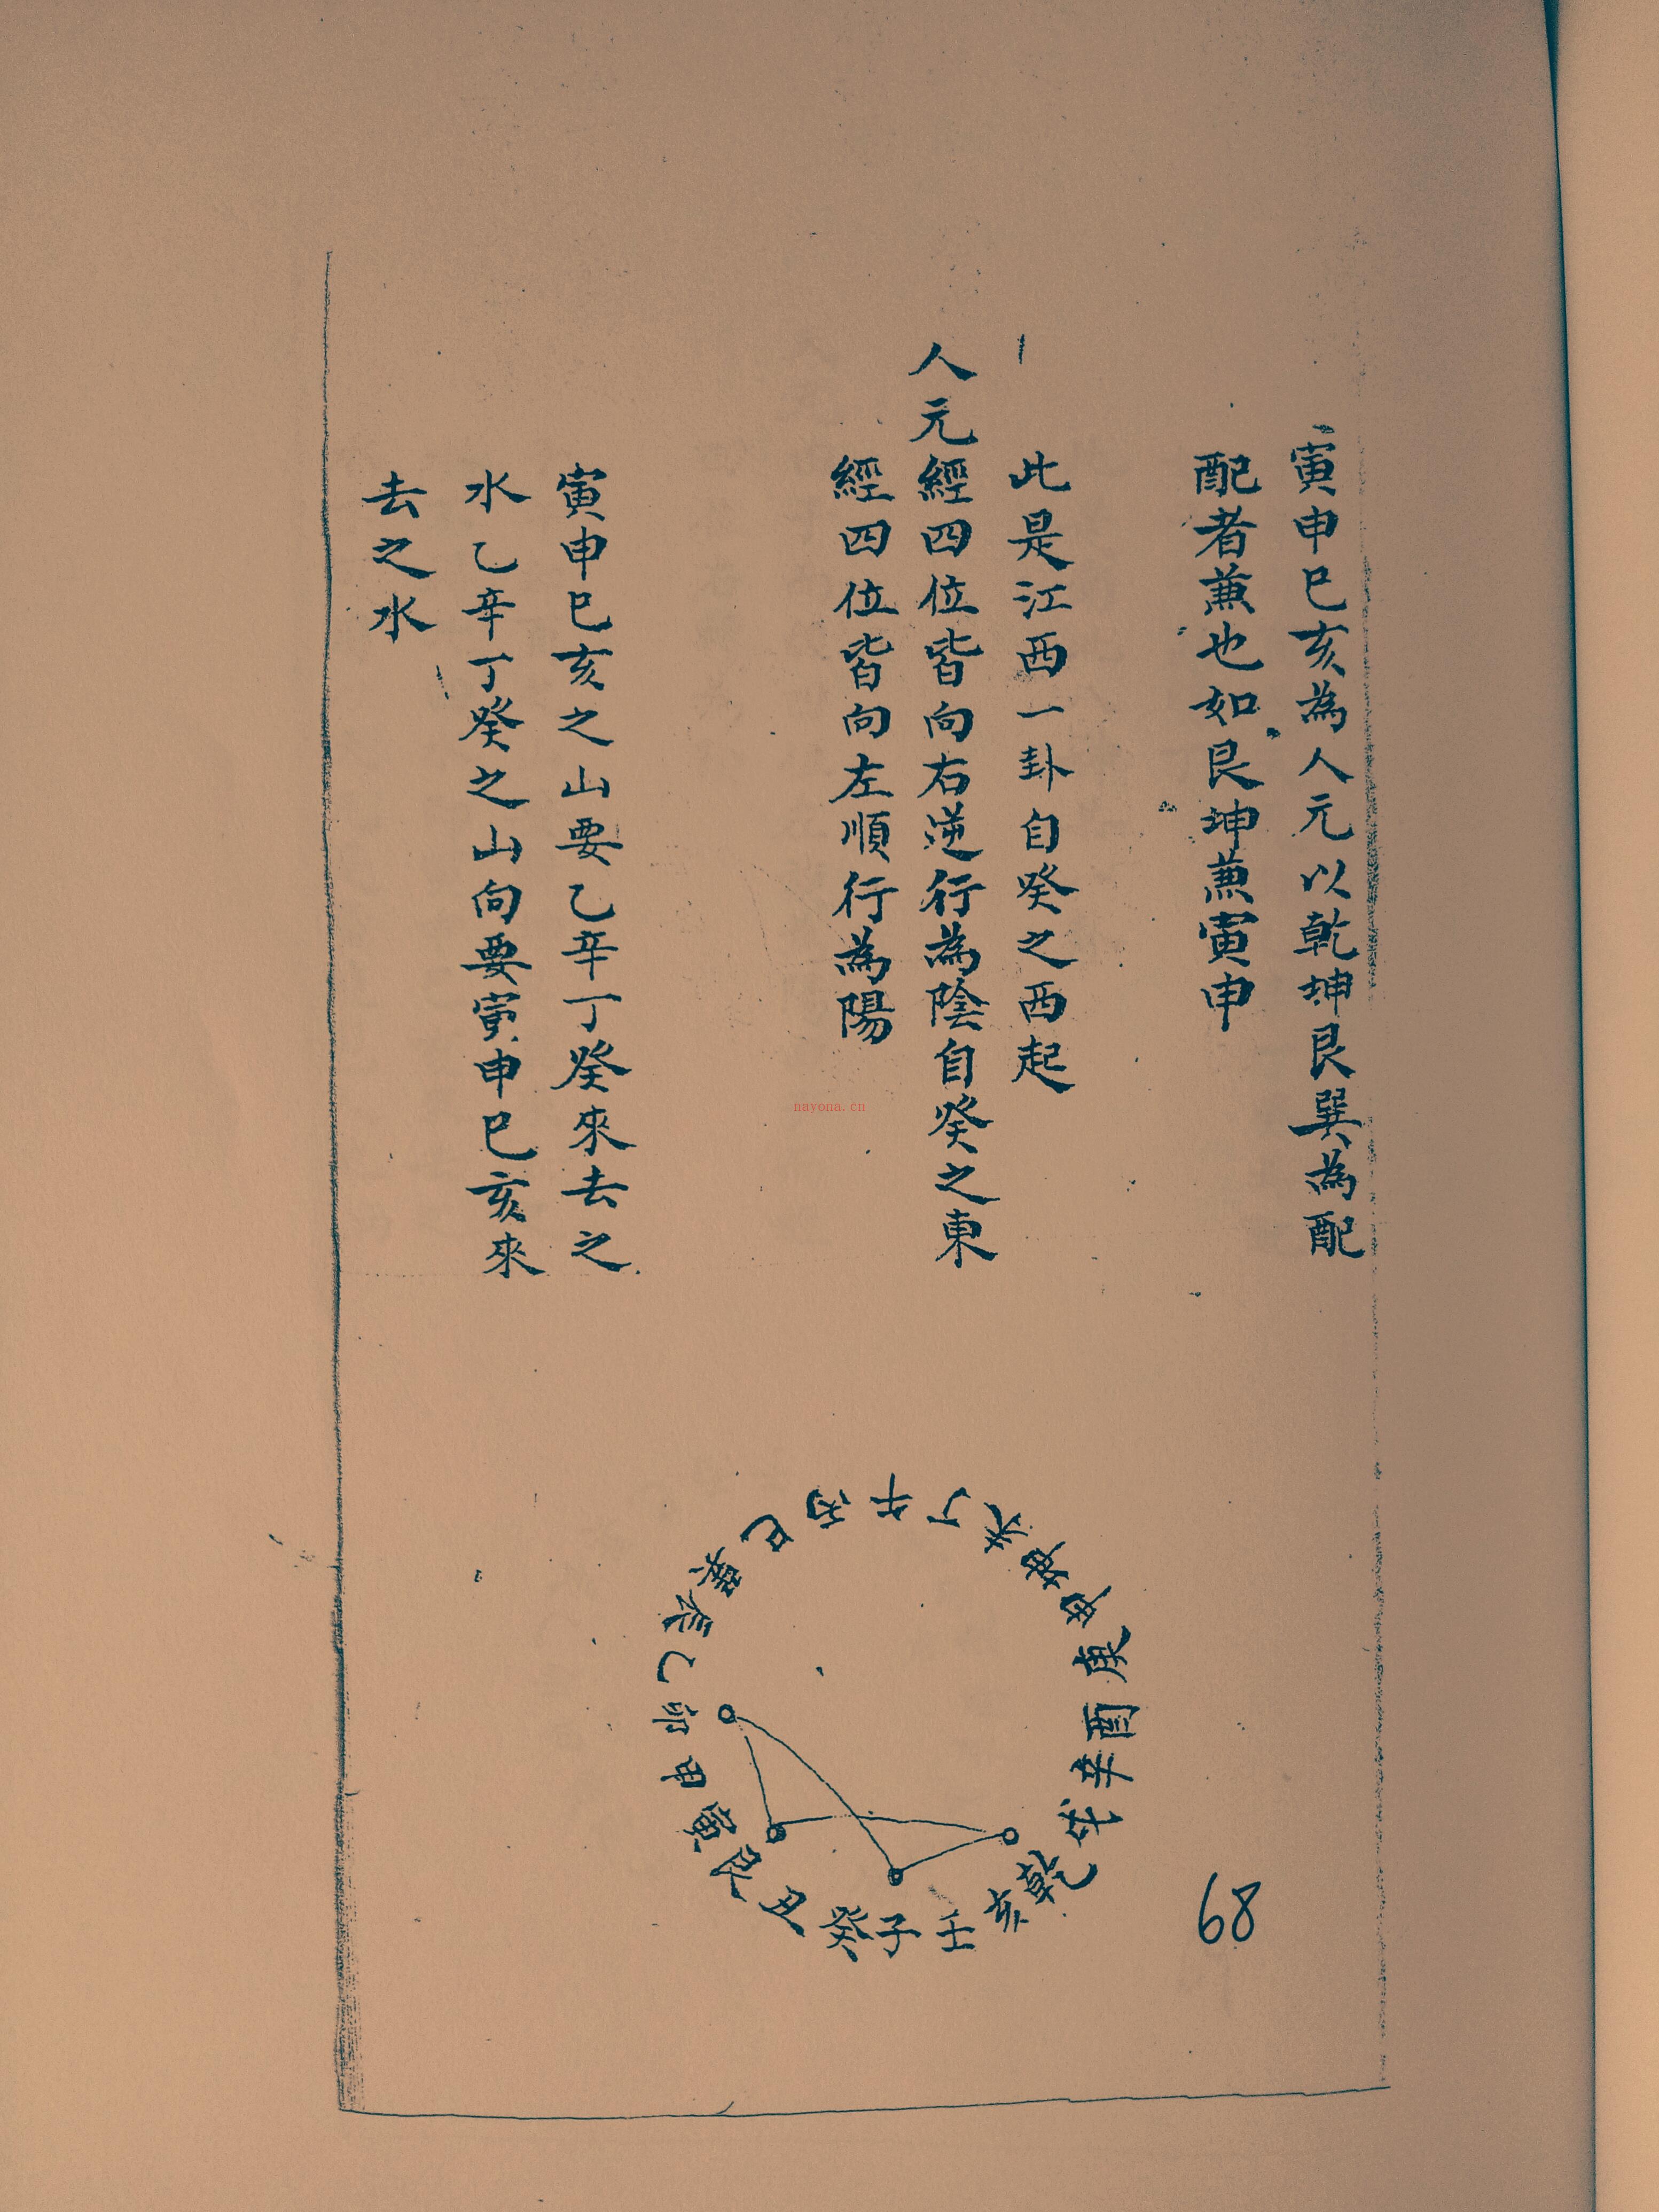 寅申巳亥為人元以乾坤艮巽為配
配者兼也如艮坤兼寅申
此是江西一卦自癸之西起
人元經四位皆向右逆行為陰自癸之東
經四位皆向左順行為陽
寅申巳亥之山要乙辛丁癸來去之
水乙辛丁癸之山向要寅申巳亥來
去之水
子癸丑艮寅甲卯乙辰巽巳丙午丁未坤申庚酉辛戌乾亥壬
68
nayona.cn